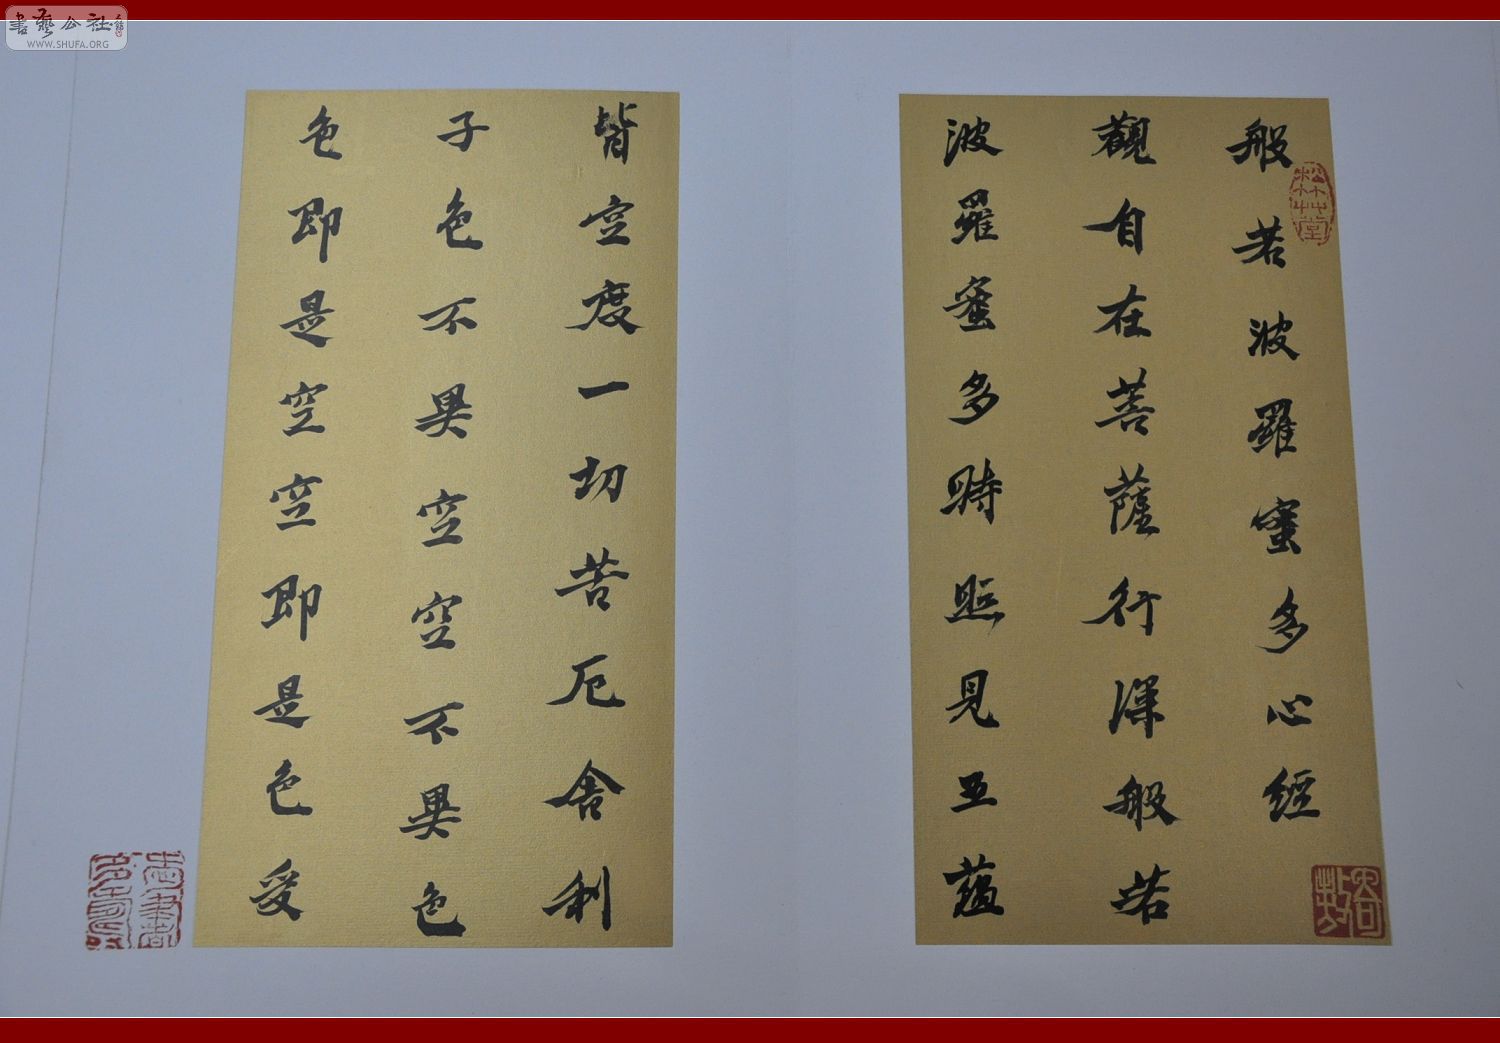 般若波羅蜜多心經
觀自在菩薩行深般若
波羅蜜多時照見五蘊
皆空度一切苦厄舍利
子色不異空空不異色
色即是空空即是色受
松竹草堂
書藝公社
WWW.SHUFA.ORG